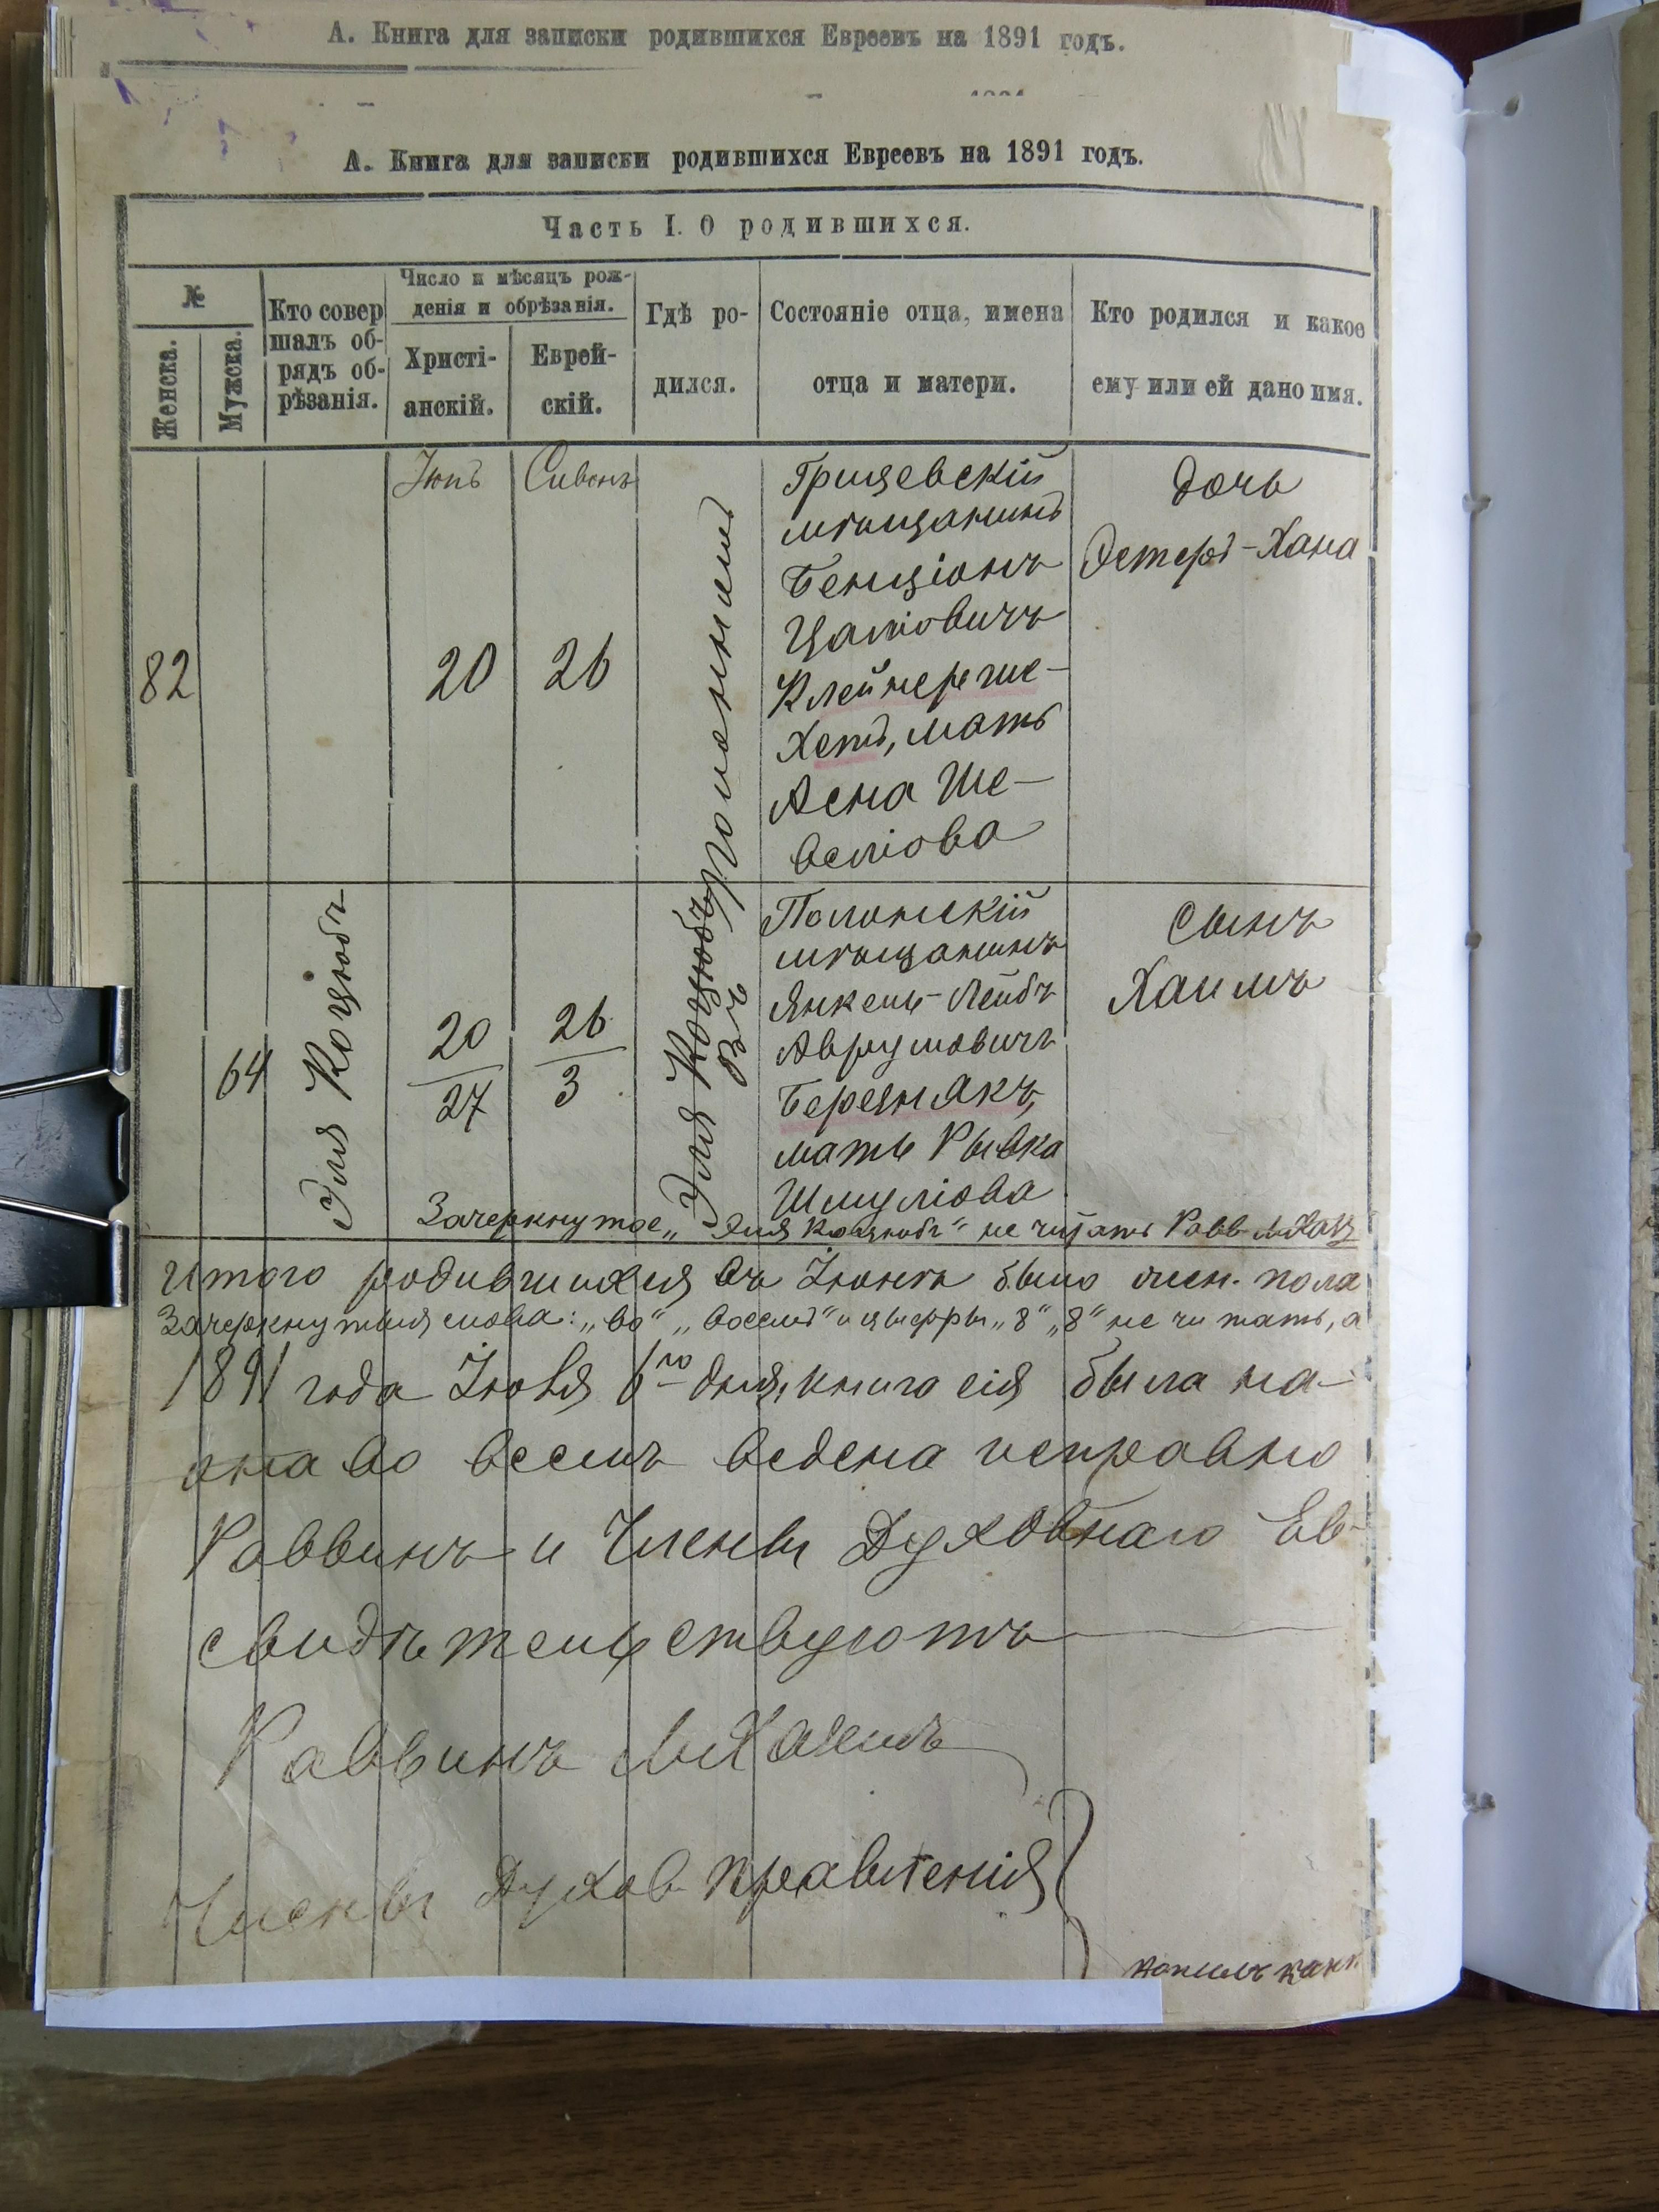 А. Книга для записки родившихся Евреевъ на 1891 годъ.
А. Книга для записки родившихся Евреевъ на 1891 годъ.
Часть I. О родившихся.
№
Женска.
Мужска.
Кто совер
шалъ об-
рядъ об-
рѣзанія.
Число и мѣсяцъ рож-
денія и обрѣзанія.
Христі-
анскій.
Еврей-
скій.
Гдѣ ро-
дился.
Состояніе отца, имена
отца и матери.
Кто родился и какое
ему или ей дано имя.
82
Іюнь
20
Сивонъ
26
Въ Полонномъ
Грицевскій
мѣщанинъ
Бенціонъ
Цалліовичъ
Клейнерше-
Хетъ, мать
Асна Ше-
веліова
дочь
Эстеръ-Хана
64
Эля Коцюбъ
20
27
26
3
Эля Коцюбъ
Полонскій
мѣщанинъ
Янкель-Лейбъ
Аврумовичъ
Березнякъ,
мать Рывка
Шмуліова
сынъ
Хаимъ
Зачеркнутое „Эля Коцюбъ“ не читать Равв
Итого родившихся въ Іюнѣ было жен. пола
Зачеркнутыя слова: „во“ „восемь“ и цыфры „8“ „8“ не читать, а
1891 года Іюля 6го дня, книга сія была на-
она во всемъ ведена исправно
Раввинъ и Члены Духовнаго Ев-
свидѣтельствуютъ
Раввинъ
Члены Духов правленія